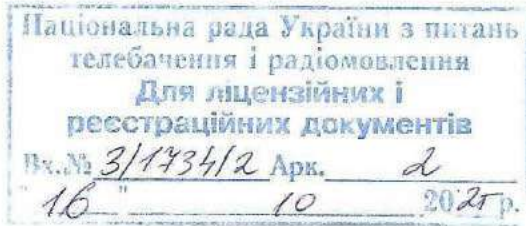 Національна рада України з питань
телебачення і радіомовлення
Для ліцензійних і
реєстраційних документів
Вх.№ 3/1734/2 Арк. 2
"16" 10 2025 р.